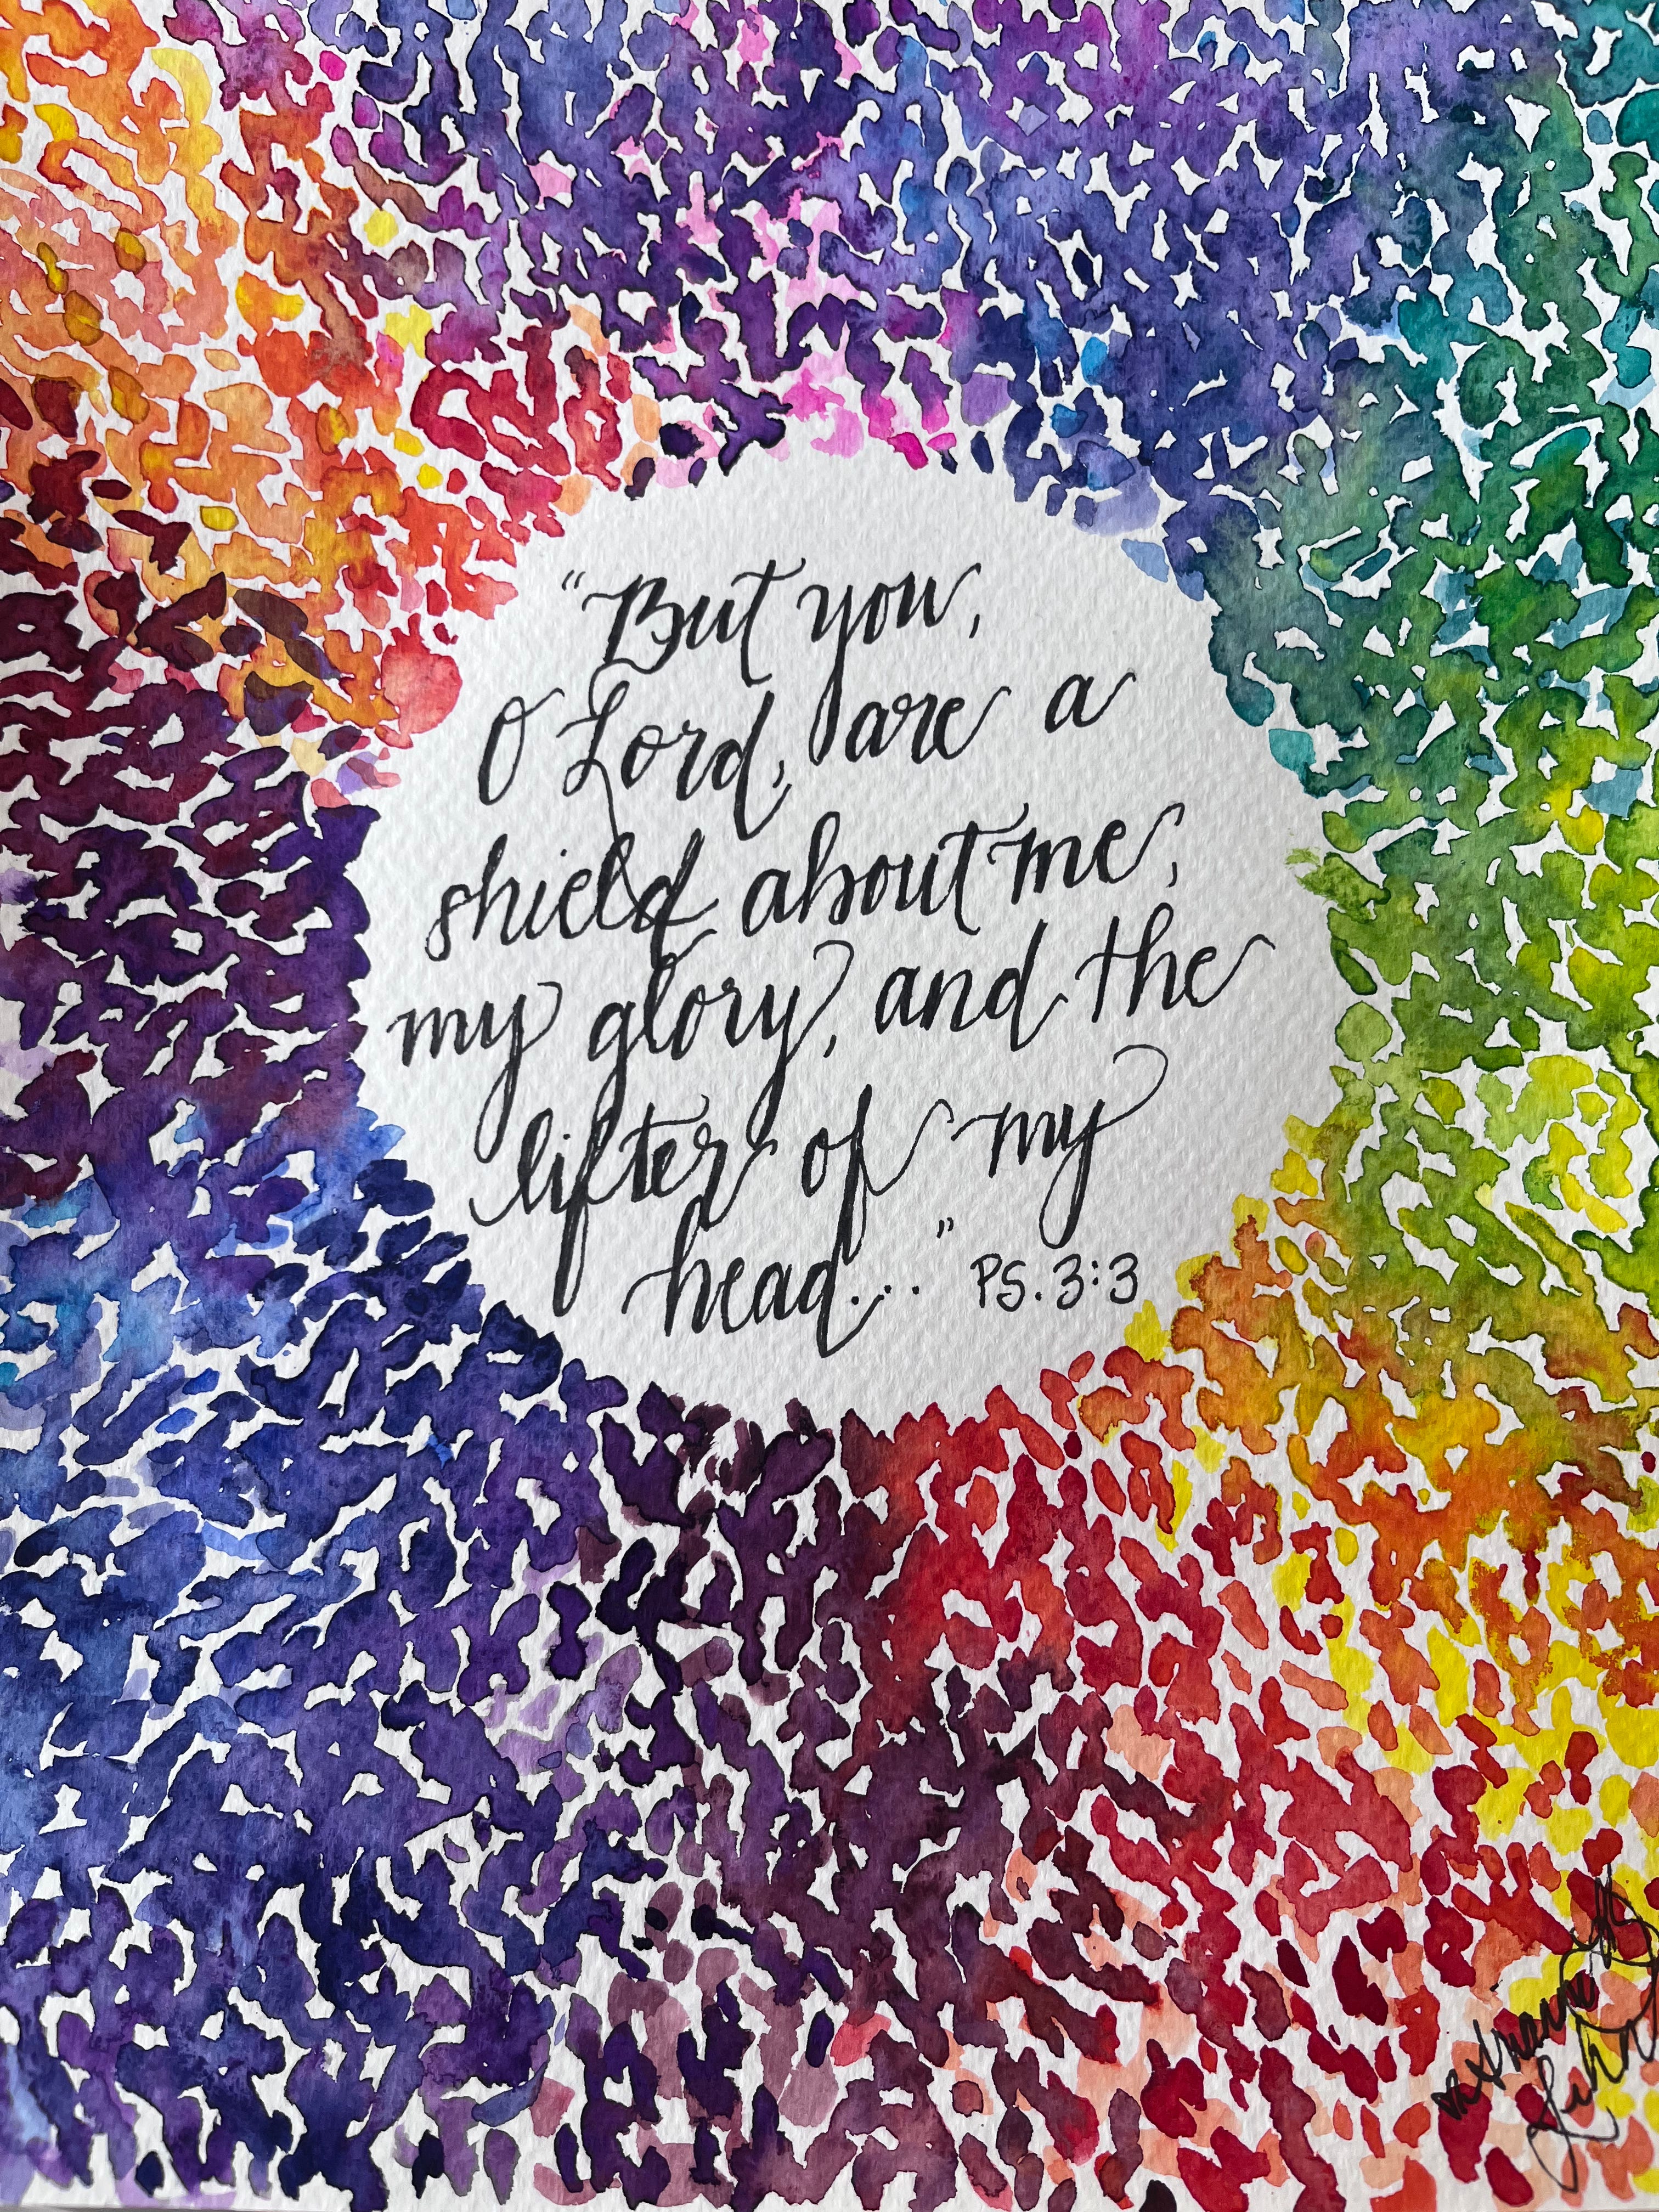 "But you,
O Lord, are a
shield about me,
my glory, and the
lifter of my
head..." PS. 3:3